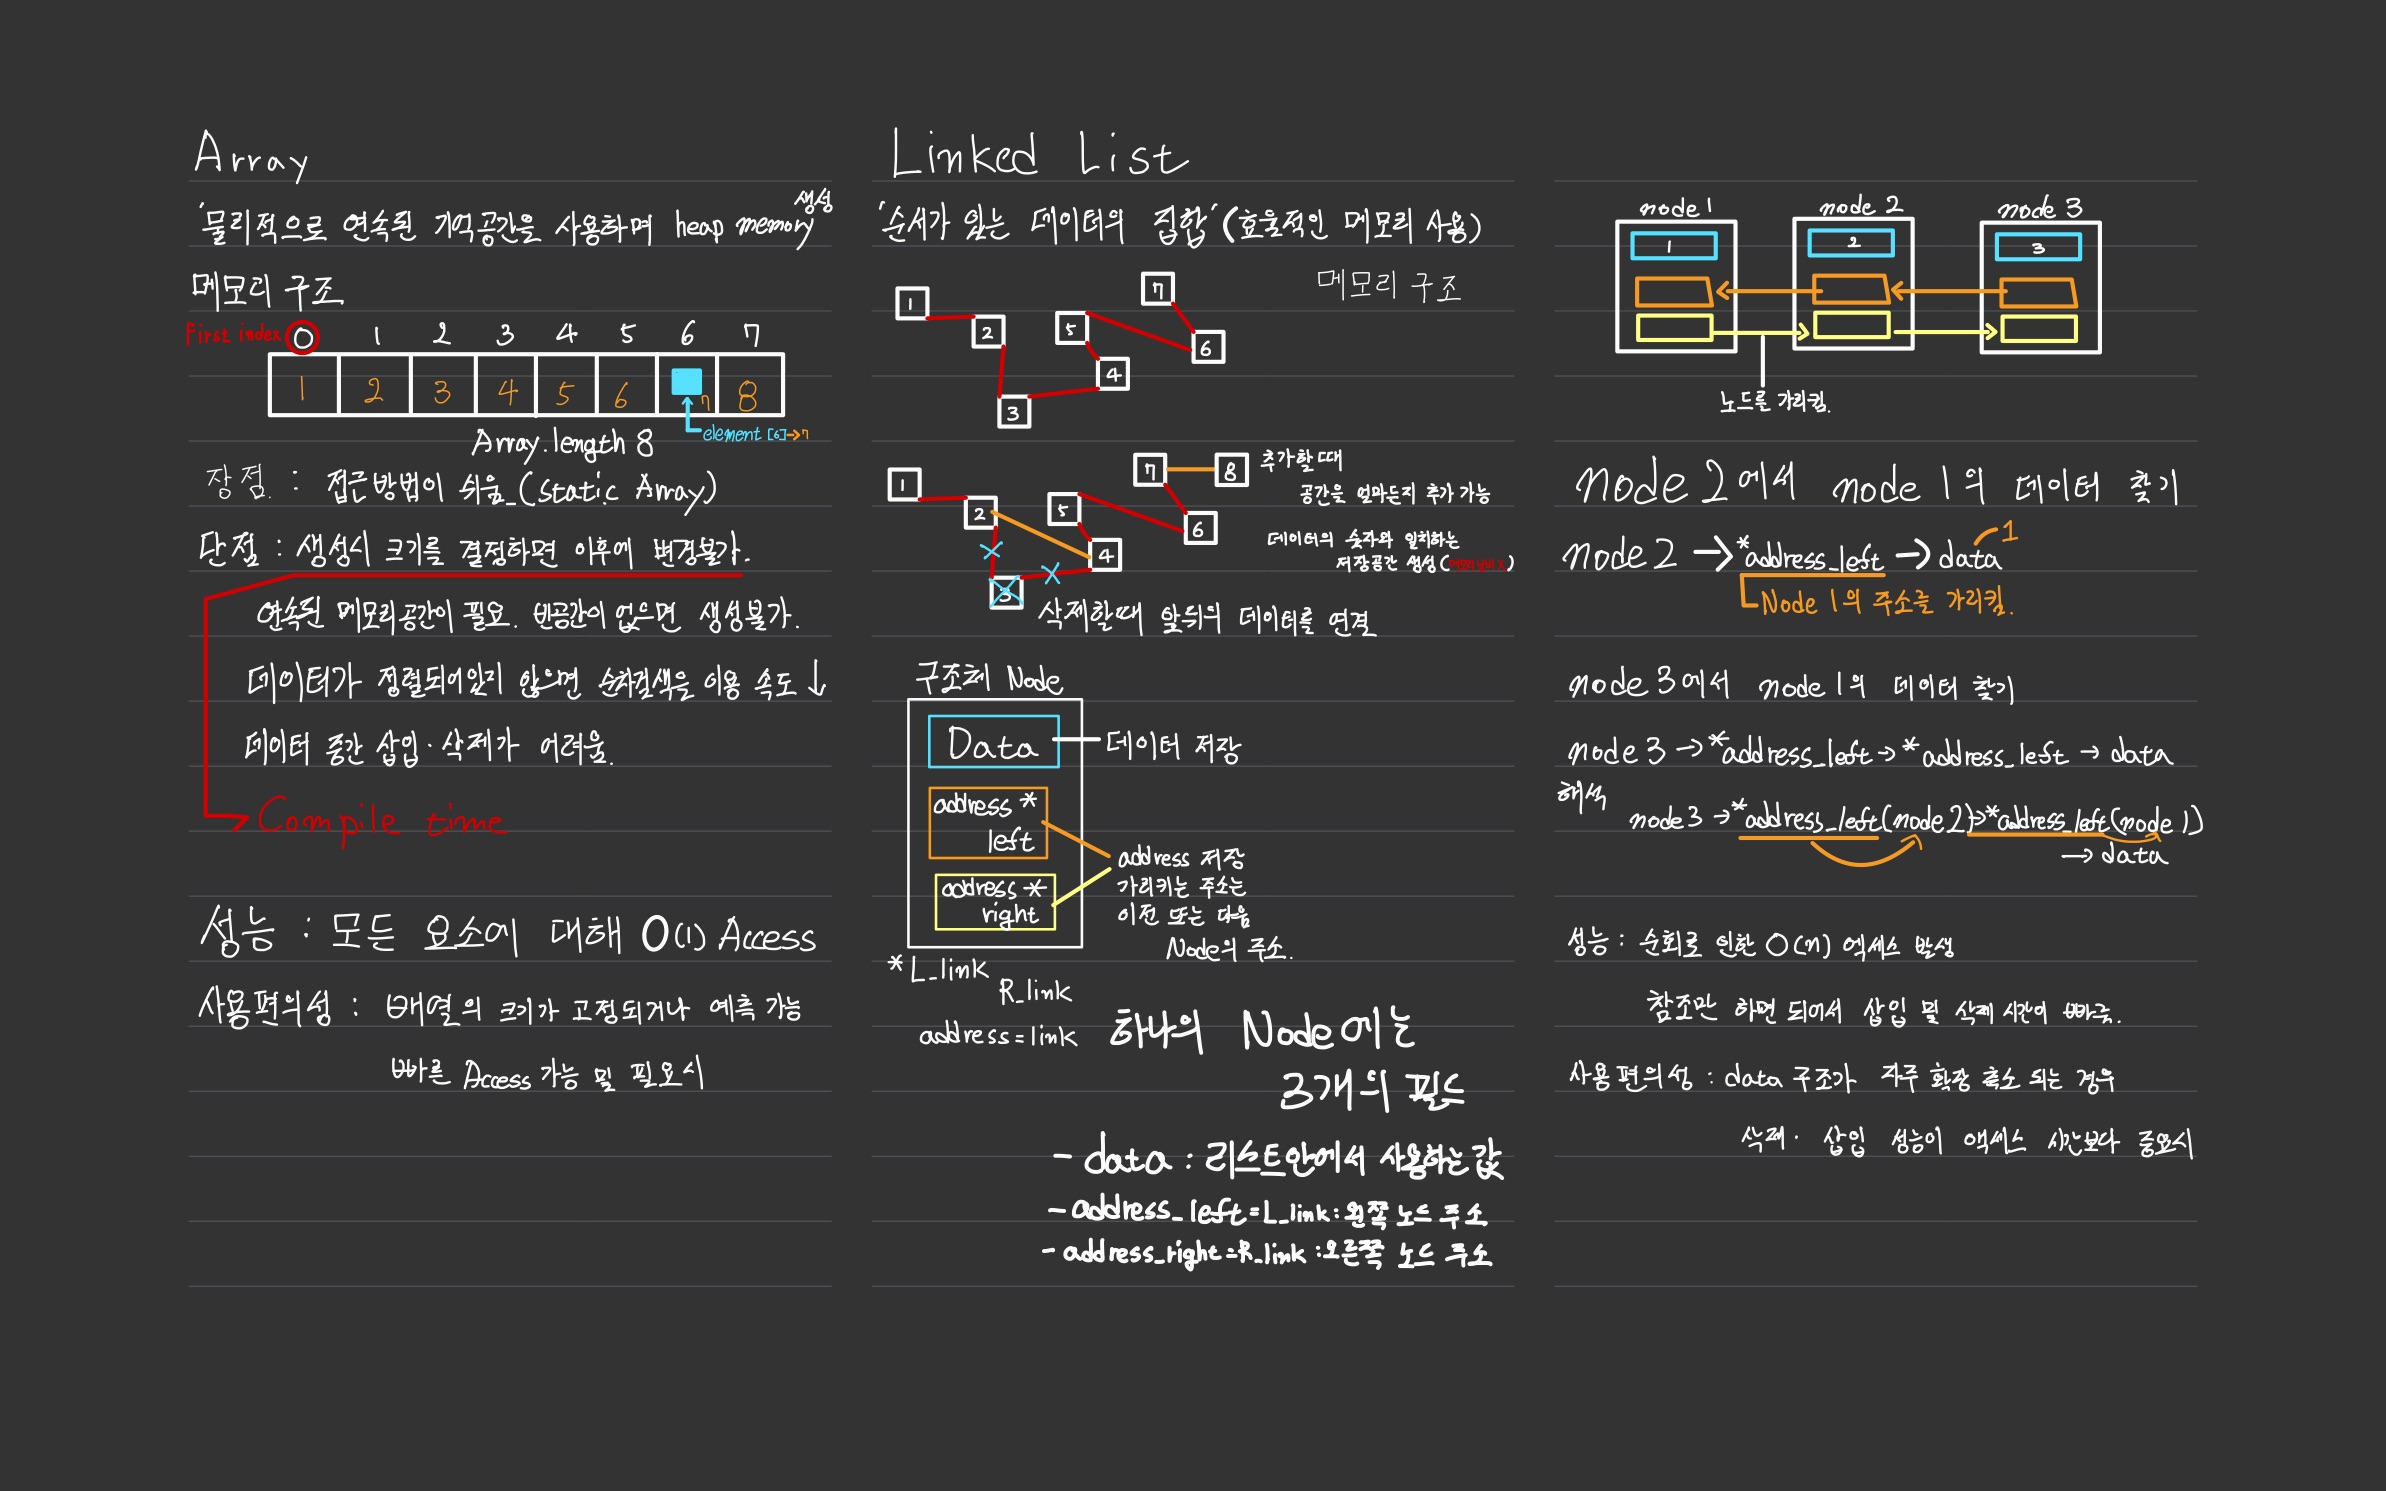 Array
'물리적으로 연속된 기억공간을 사용하며 heap memory 생성
메모리 구조
First index 0 1 2 3 4 5 6 7
1 2 3 4 5 6 7 8
element [6]→7
Array.length 8
장점 : 접근방법이 쉬움_(Static Array)
단점 : 생성시 크기를 결정하면 이후에 변경불가.
연속된 메모리공간이 필요. 빈공간이 없으면 생성불가.
데이터가 정렬되어있지 않으면 순차검색을 이용 속도↓
데이터 중간 삽입·삭제가 어려움.
Compile time
성능 : 모든 요소에 대해 O(1) Access
사용편의성 : 배열의 크기가 고정되거나 예측 가능
빠른 Access 가능 및 필요시
Linked List
'순서가 있는 데이터의 집합' (효율적인 메모리 사용)
메모리 구조
1 2 3 4 5 6 7
1 2 3 4 5 6 7 8
추가할때
공간을 얼마든지 추가 가능
데이터의 숫자와 일치하는
저장공간 생성(메모리낭비 X)
삭제할때 앞뒤의 데이터를 연결
구조체 Node
Data
데이터 저장
address *
left
address *
right
address 저장
가리키는 주소는
이전 또는 다음
Node의 주소.
*L_link
R_link
address = link
하나의 Node에는
3개의 필드
- data : 리스트안에서 사용하는 값
- address_left = L_link : 왼쪽 노드 주소
- address_right = R_link : 오른쪽 노드 주소
node 1 node 2 node 3
1 2 3
노드를 가리킴.
node 2에서 node 1의 데이터 찾기
node 2 → *address_left → data 1
Node 1의 주소를 가리킴.
node 3에서 node 1의 데이터 찾기
node 3 → *address_left → *address_left → data
해석
node3 → *address_left(node2) → *address_left(node 1)
→ data
성능 : 순회로 인한 O(n) 엑세스 발생
참조만 하면 되어서 삽입 및 삭제 시간이 빠름.
사용편의성 : data 구조가 자주 확장 축소 되는 경우
삭제· 삽입 성능이 액세스 시간보다 중요시